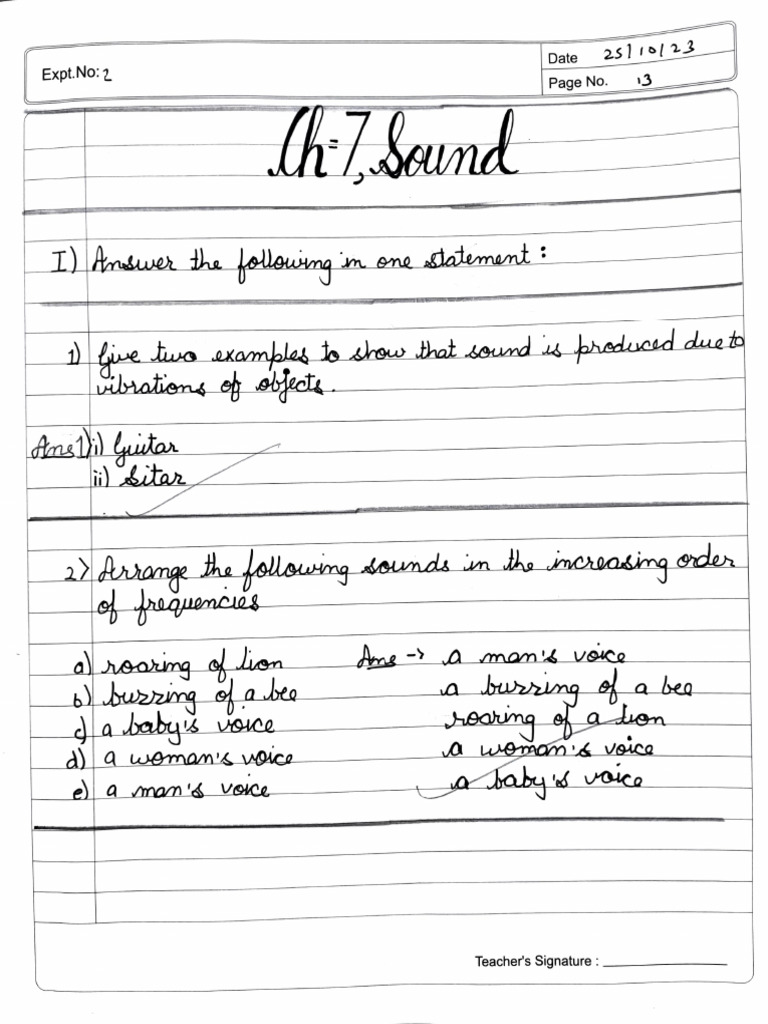 Expt.No: 2
Date 25/10/23
Page No. 13
Ch=7, Sound
I) Answer the following in one statement :
1) Give two examples to show that sound is produced due to
vibrations of objects.
Ans1) i) Guitar
ii) Sitar
2) Arrange the following sounds in the increasing order
of frequencies
a) roaring of lion
b) buzzing of a bee
c) a baby's voice
d) a woman's voice
e) a man's voice
Ans → a man's voice
a buzzing of a bee
roaring of a lion
a woman's voice
a baby's voice
Teacher's Signature :